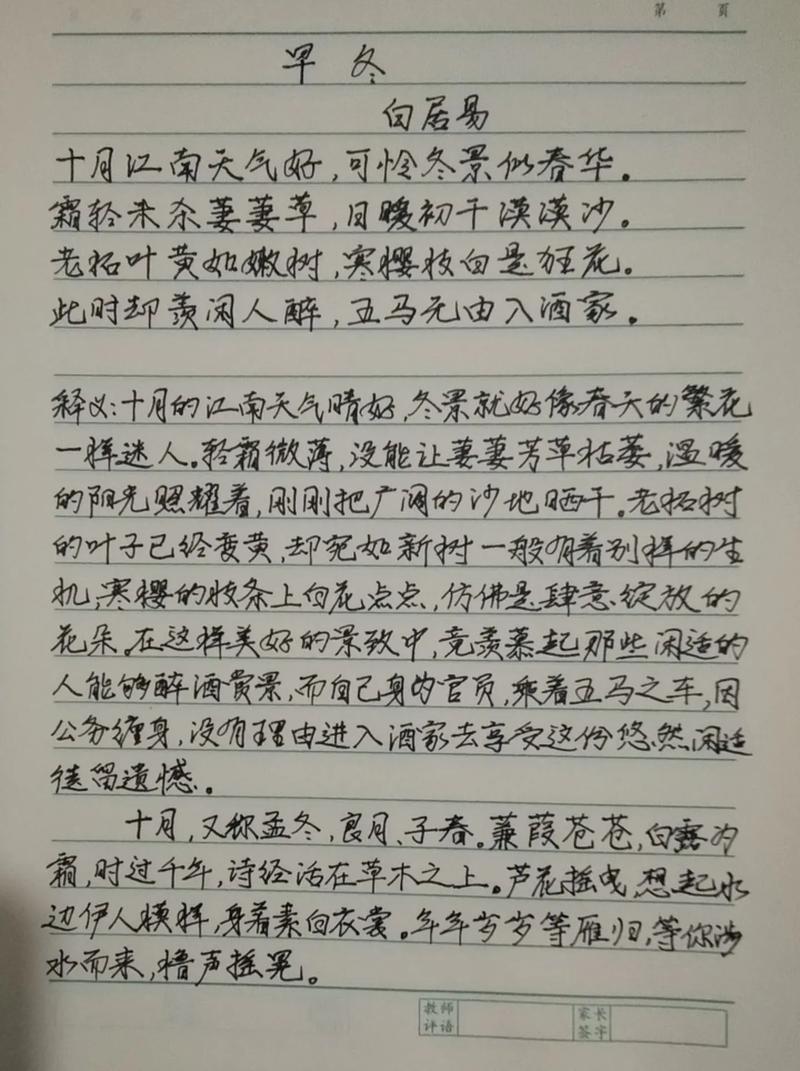 第 页
早冬
白居易
十月江南天气好，可怜冬景似春华。
霜轻未杀萋萋草，日暖初干漠漠沙。
老柘叶黄如嫩树，寒樱枝白是狂花。
此时却羡闲人醉，五马无由入酒家。
释义：十月的江南天气晴好，冬景就好像春天的繁花
一样迷人。轻霜微薄，没能让萋萋芳草枯萎，温暖
的阳光照耀着，刚刚把广阔的沙地晒干。老柘树
的叶子已经变黄，却宛如新树一般有着别样的生
机，寒樱的枝条上白花点点，仿佛是肆意绽放的
花朵。在这样美好的景致中，竟羡慕起那些闲适的
人能够醉酒赏景，而自己身为官员，乘着五马之车，因
公务缠身，没有理由进入酒家去享受这份悠然闲适
徒留遗憾。
十月，又称孟冬，良月、子春。蒹葭苍苍，白露为
霜，时过千年，诗经活在草木之上。芦花摇曳，想起水
边伊人模样，身着素白衣裳。年年岁岁等雁归，等你涉
水而来，橹声摇晃。
教师评语 家长签字